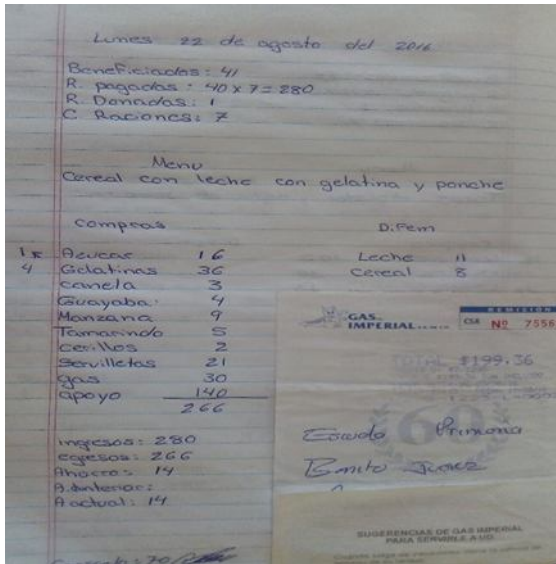 Lunes 22 de agosto del 2016
Beneficiados: 41
R. pagadas: 40 x 7 = 280
R. Donadas: 1
C. Raciones: 7
Menu
Cereal con leche con gelatina y ponche
compras
1K Azucar 16
4 Gelatinas 36
canela 3
Guayaba: 4
Manzana 9
Tamarindo 5
cerillos 2
Servilletas 21
gas 30
apoyo 140
266
D.Fem
Leche 11
Cereal 8
ingresos: 280
egresos: 266
Ahorro: 14
A. Anterior:
A actual: 14
GAS IMPERIAL
REMISION
CSA Nº 7556
TOTAL $199.36
60
Escuela Primaria
Benito Juarez
SUGERENCIAS DE GAS IMPERIAL
PARA SERVIRLE A UD.